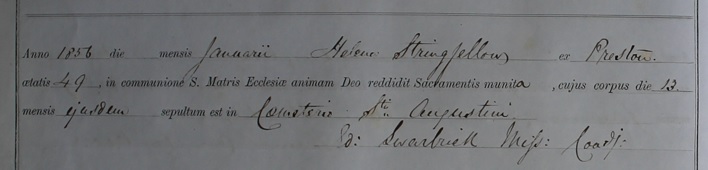 Anno 1856 die mensis Januarii Helena Stringfellow ex Preston.
ætatis 49, in communione S. Matris Ecclesiæ animam Deo reddidit Sacramentis munita, cujus corpus die 13
mensis ejusdem sepultum est in Cœmeterio Sti. Augustini
Ed: Swarbrick Miss: Coadj: